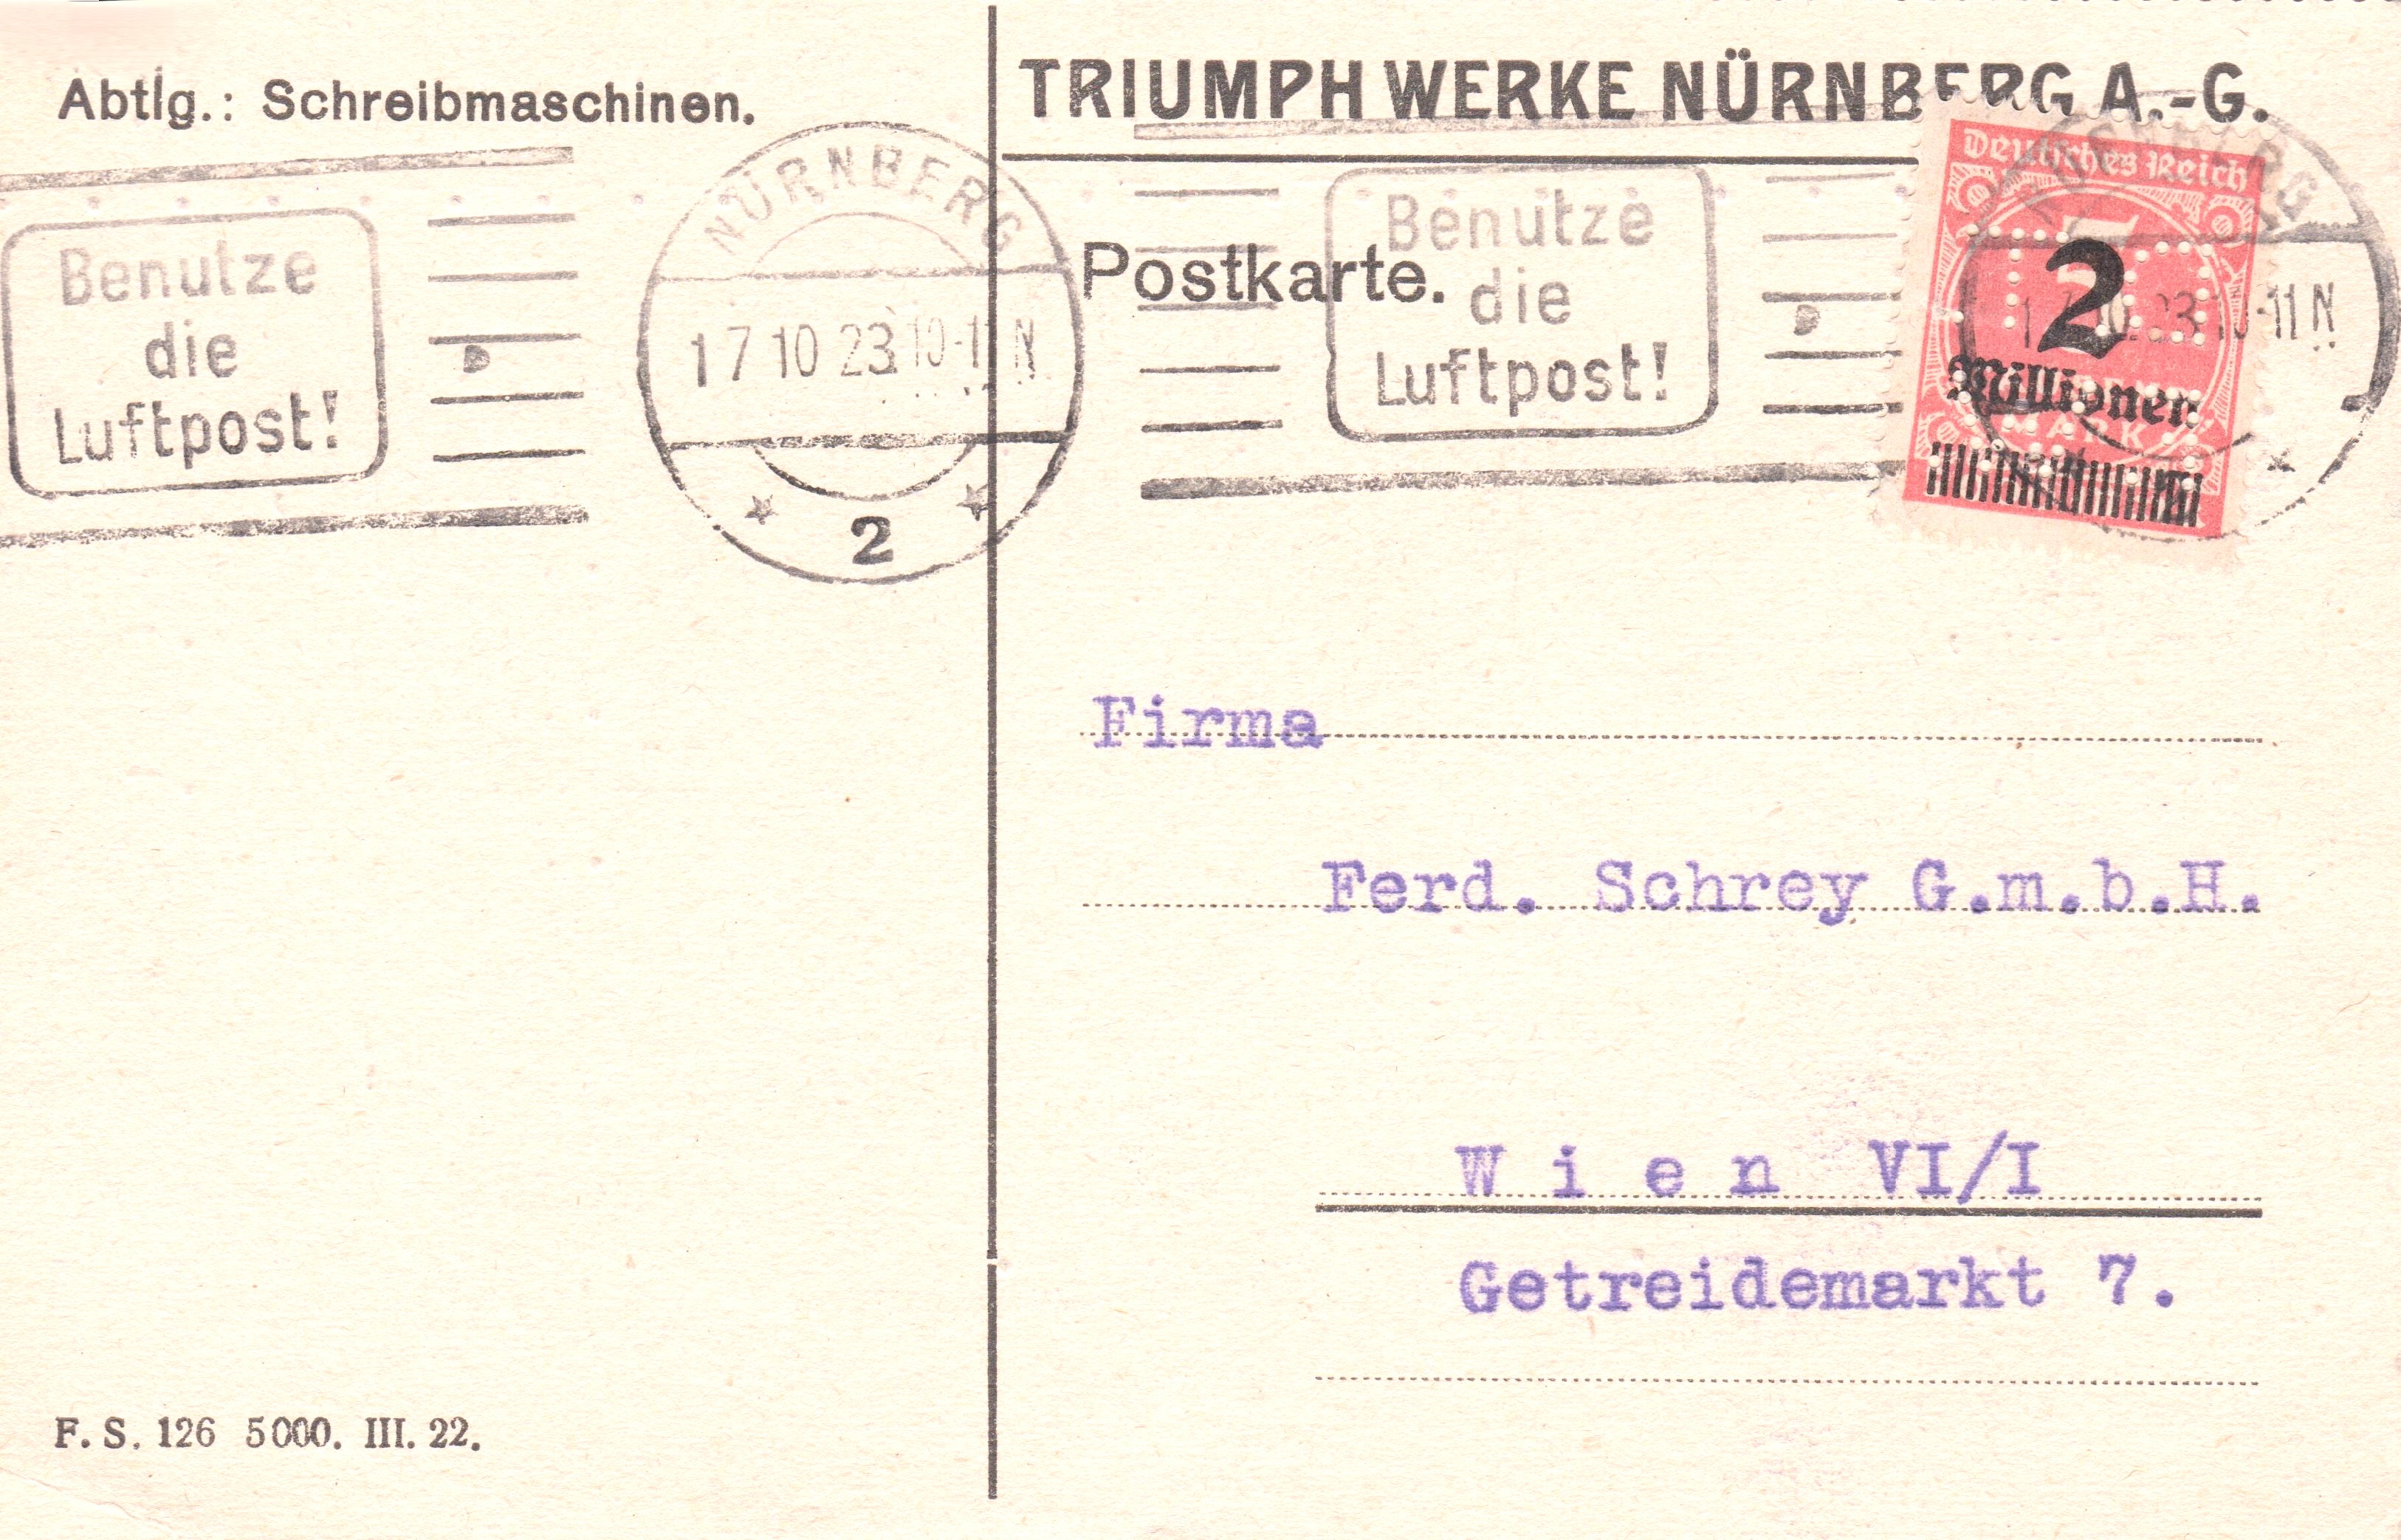 Abtlg.: Schreibmaschinen.
TRIUMPH WERKE NÜRNBERG A.-G.
Benutze
die
Luftpost!
NÜRNBERG
17 10 23 10-11 N
2
Postkarte.
Benutze
die
Luftpost!
Deutsches Reich
2
Millionen
MARK
Firma
Ferd. Schrey G.m.b.H.
Wien VI/I
Getreidemarkt 7.
F. S. 126 5000. III. 22.